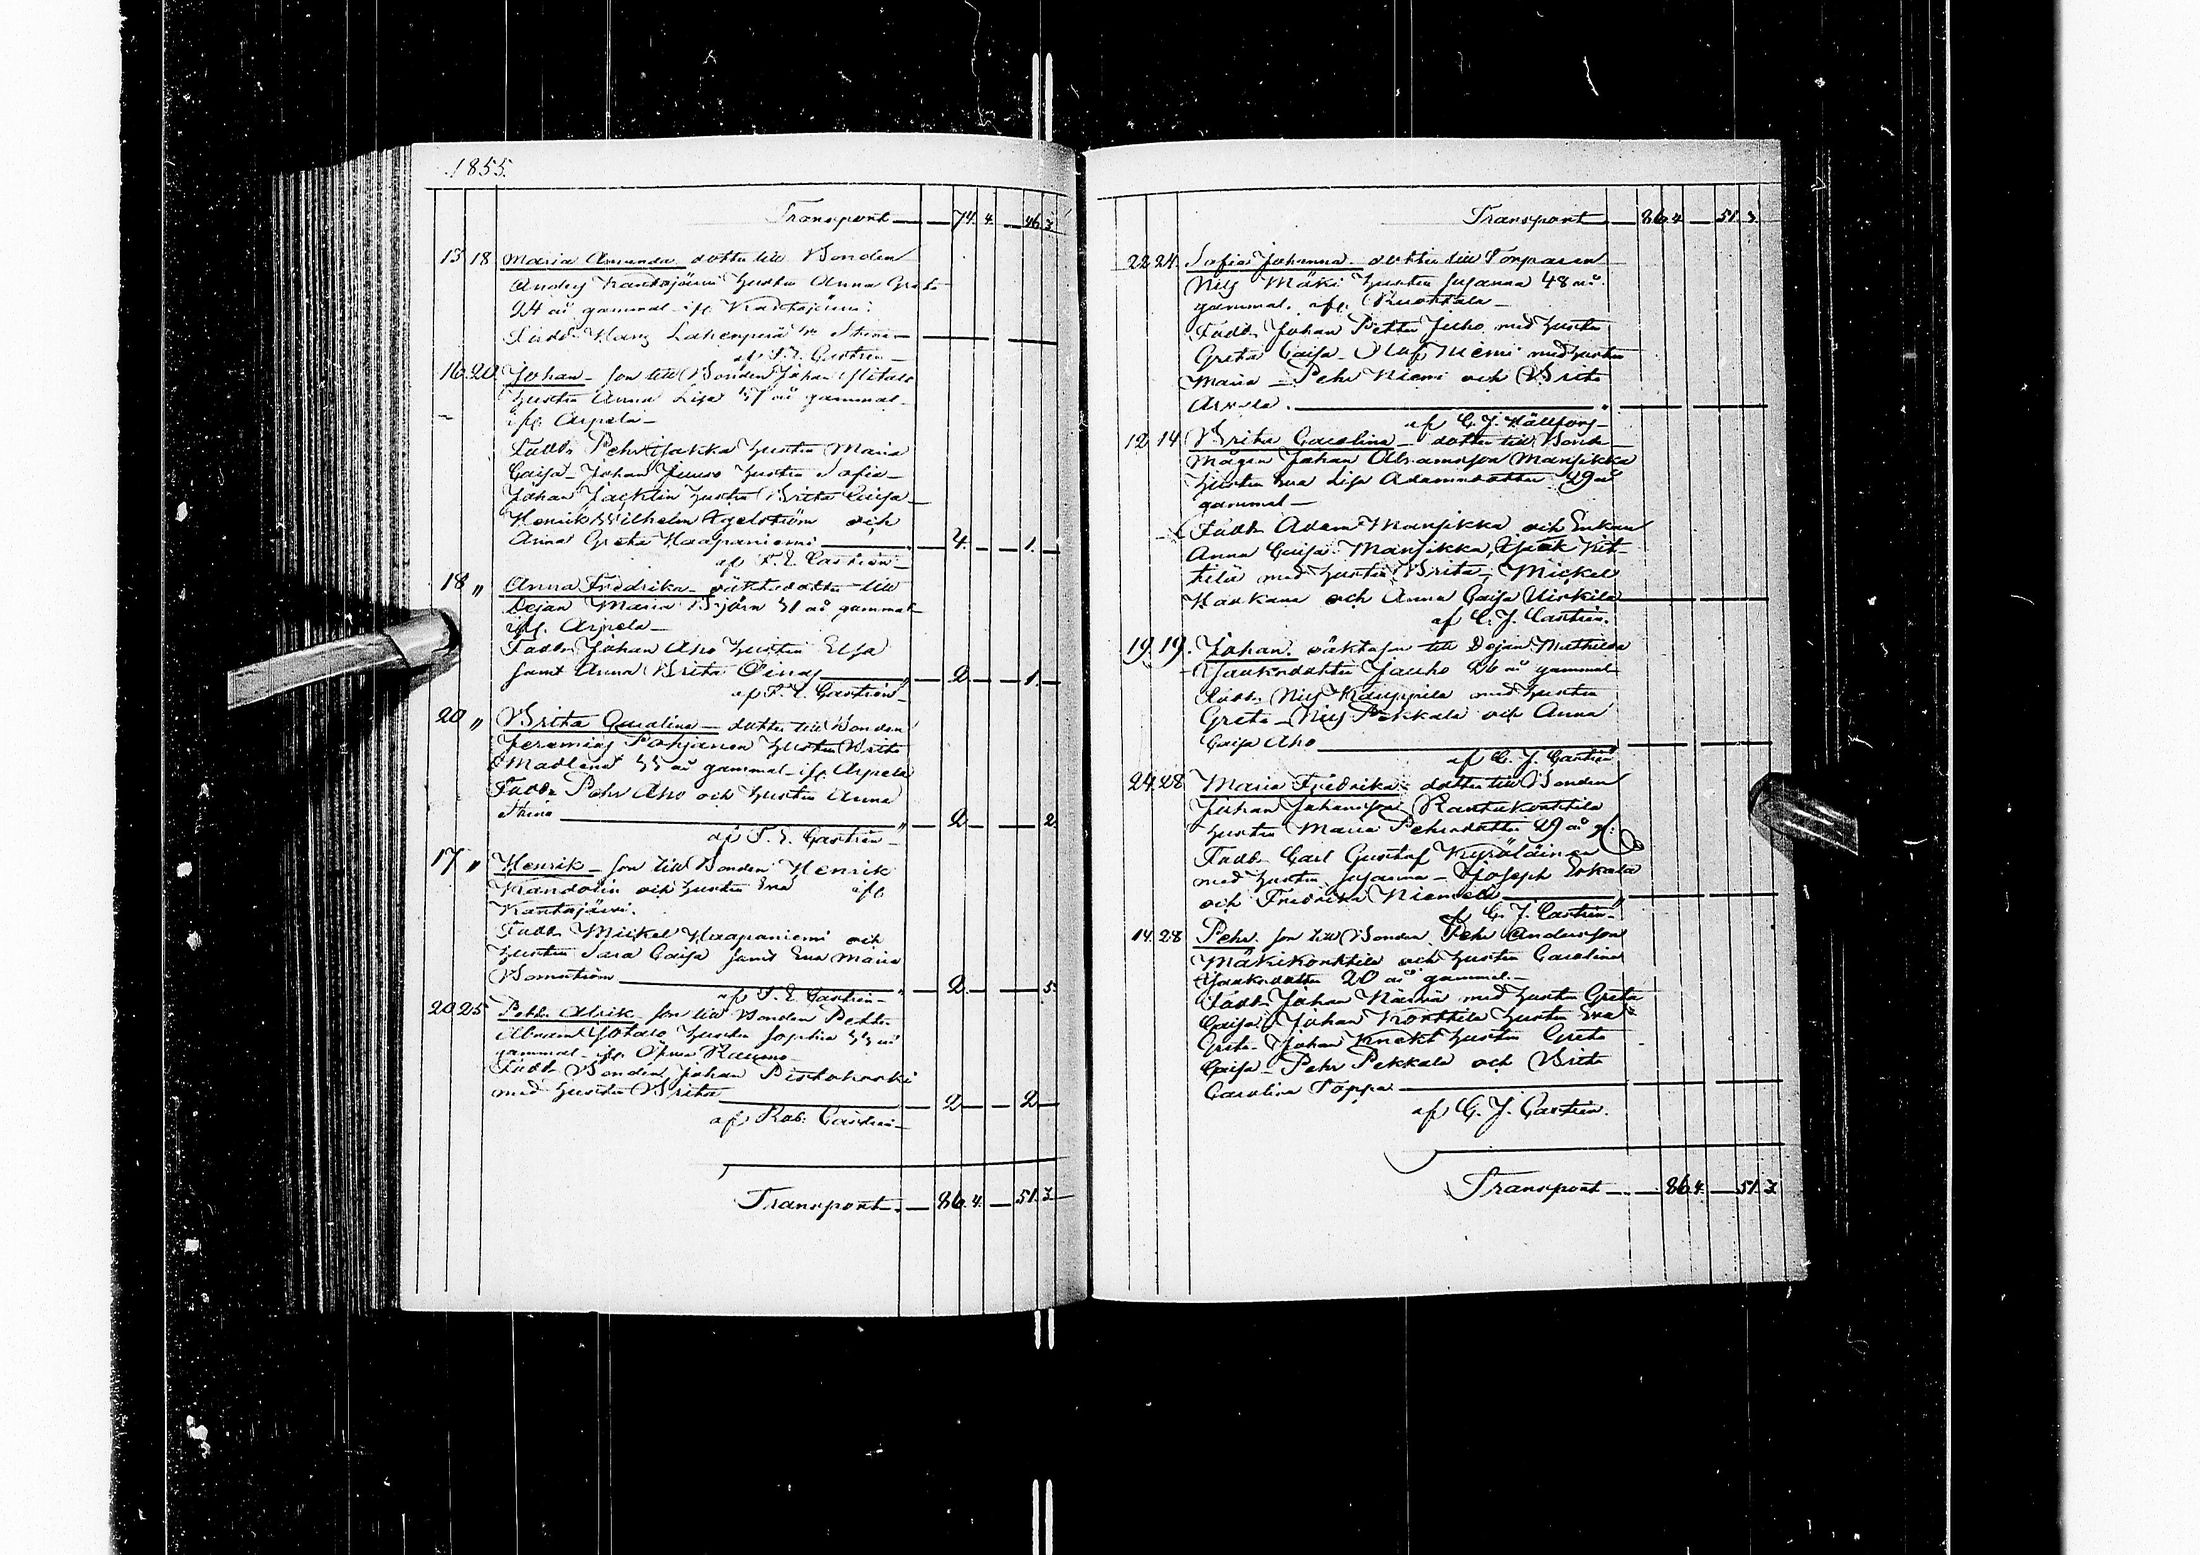 1855.
Transport — 74. 4. — 46. 3
15 18 Maria Amanda dotter till Bonden
Anders Kantojärvi hustru Anna Greta
24 år gammal ifr. Kantojärvi.
Fadd. Hans Lahenperä m Stina —
af F. E. Castrén —
16. 20. Johan — son till Bonden Johan
hustru Anna Lisa 37 år gammal
ifr. Arpela —
Faddr. Pehr hustru Maria
Caisa — Johan Juuso hustru Sofia —
Johan hustru Brita Caisa —
Henrik Wilhelm Ågelström och
Anna Greta Haapaniemi — 4. — 1. —
af F. E. Castrén —
18 „ Anna Fredrika — oäkta dotter till
Pejan Maria Björn 31 år gammal
ifr. Arpela —
Faddr. Johan Aho hustru Elsa
samt Anna Brita — 2. — 1. —
af F. E. Castrén
20 „ Brita Carolina — dotter till Bonden
Jeremias Pohjanen hustru Brita
Madlena 33 år gammal — ifr. Arpela
Faddr. Pehr Aho och hustru Anna
Stina — 2. — 2.
af F. E. Castrén —
17 „ Henrik — son till Bonden Henrik
Kandolin och hustru Eva ifr.
Kantojärvi.
Faddr. Mickel Haapaniemi och
hustru Sara Caisa samt Eva Maria
Bomström — 2. — 5.
af F. E. Castrén —
20 25 Pett. Alrik — son till Bonden Petter
Abram hustru Sophia 33 år
gammal — ifr. Öfver Raumo —
Faddr. Bonden Johan
med hustru Brita — 2 — 2 —
af Rob. Castrén —
Transport — 86. 4. — 51. 3
Transport — 86. 4 — 51. 3
22 24 Sofia Johanna — dotter till Torparen
Nils Mäki hustru Susanna 48 år
gammal. ifr. Ruottala —
Faddr. Johan Petter Juho med hustru
Greta Caisa — Olof Niemi med hustru
Maria — Pehr Niemi och Brita
Arpela. —
af C. J. Hällfors —
12 14 Brita Carolina — dotter till Bonde
Mågen Johan Abramsson Mansikka
hustru Eva Lisa Adamsdotter 29 år
gammal —
Faddr. Adam Mansikka och Enkan
Anna Caisa Mansikka, Isak Kit-
tilä med hustru Brita, Mickel
Haukana och Anna Caisa Uirkila —
af C. J. Castrén.
19. 19. Johan. oäkta son till Pejan Mathilda
Isaksdotter Jauho 26 år gammal
Faddr. Nils Kauppila med hustru
Greta — Nils Pekkala och Anna
Caisa Aho —
af C. J. Castrén
24. 28 Maria Fredrika — dotter till Bonden
Johan Johansson Rantukorttila
hustru Maria Pehrsdotter 29 år gl.
Faddr. Carl Gustaf Kyröläinen
med hustru Susanna — Joseph Erkala
och Fredrika Niemelä —
af C. J. Castrén —
14. 28 Pehr. son till Bonden Pehr Andersson
Mäkikorttila och hustru Carolina
Isaksdotter 20 år gammal. —
Faddr. Johan med hustru Greta
Caisa, Johan Korttila hustru Eva
Greta — Johan Knekt hustru Greta
Caisa — Pehr Pekkala och Brita
Carolina Poppa —
af C. J. Castrén.
Transport — 86. 4. — 51. 3